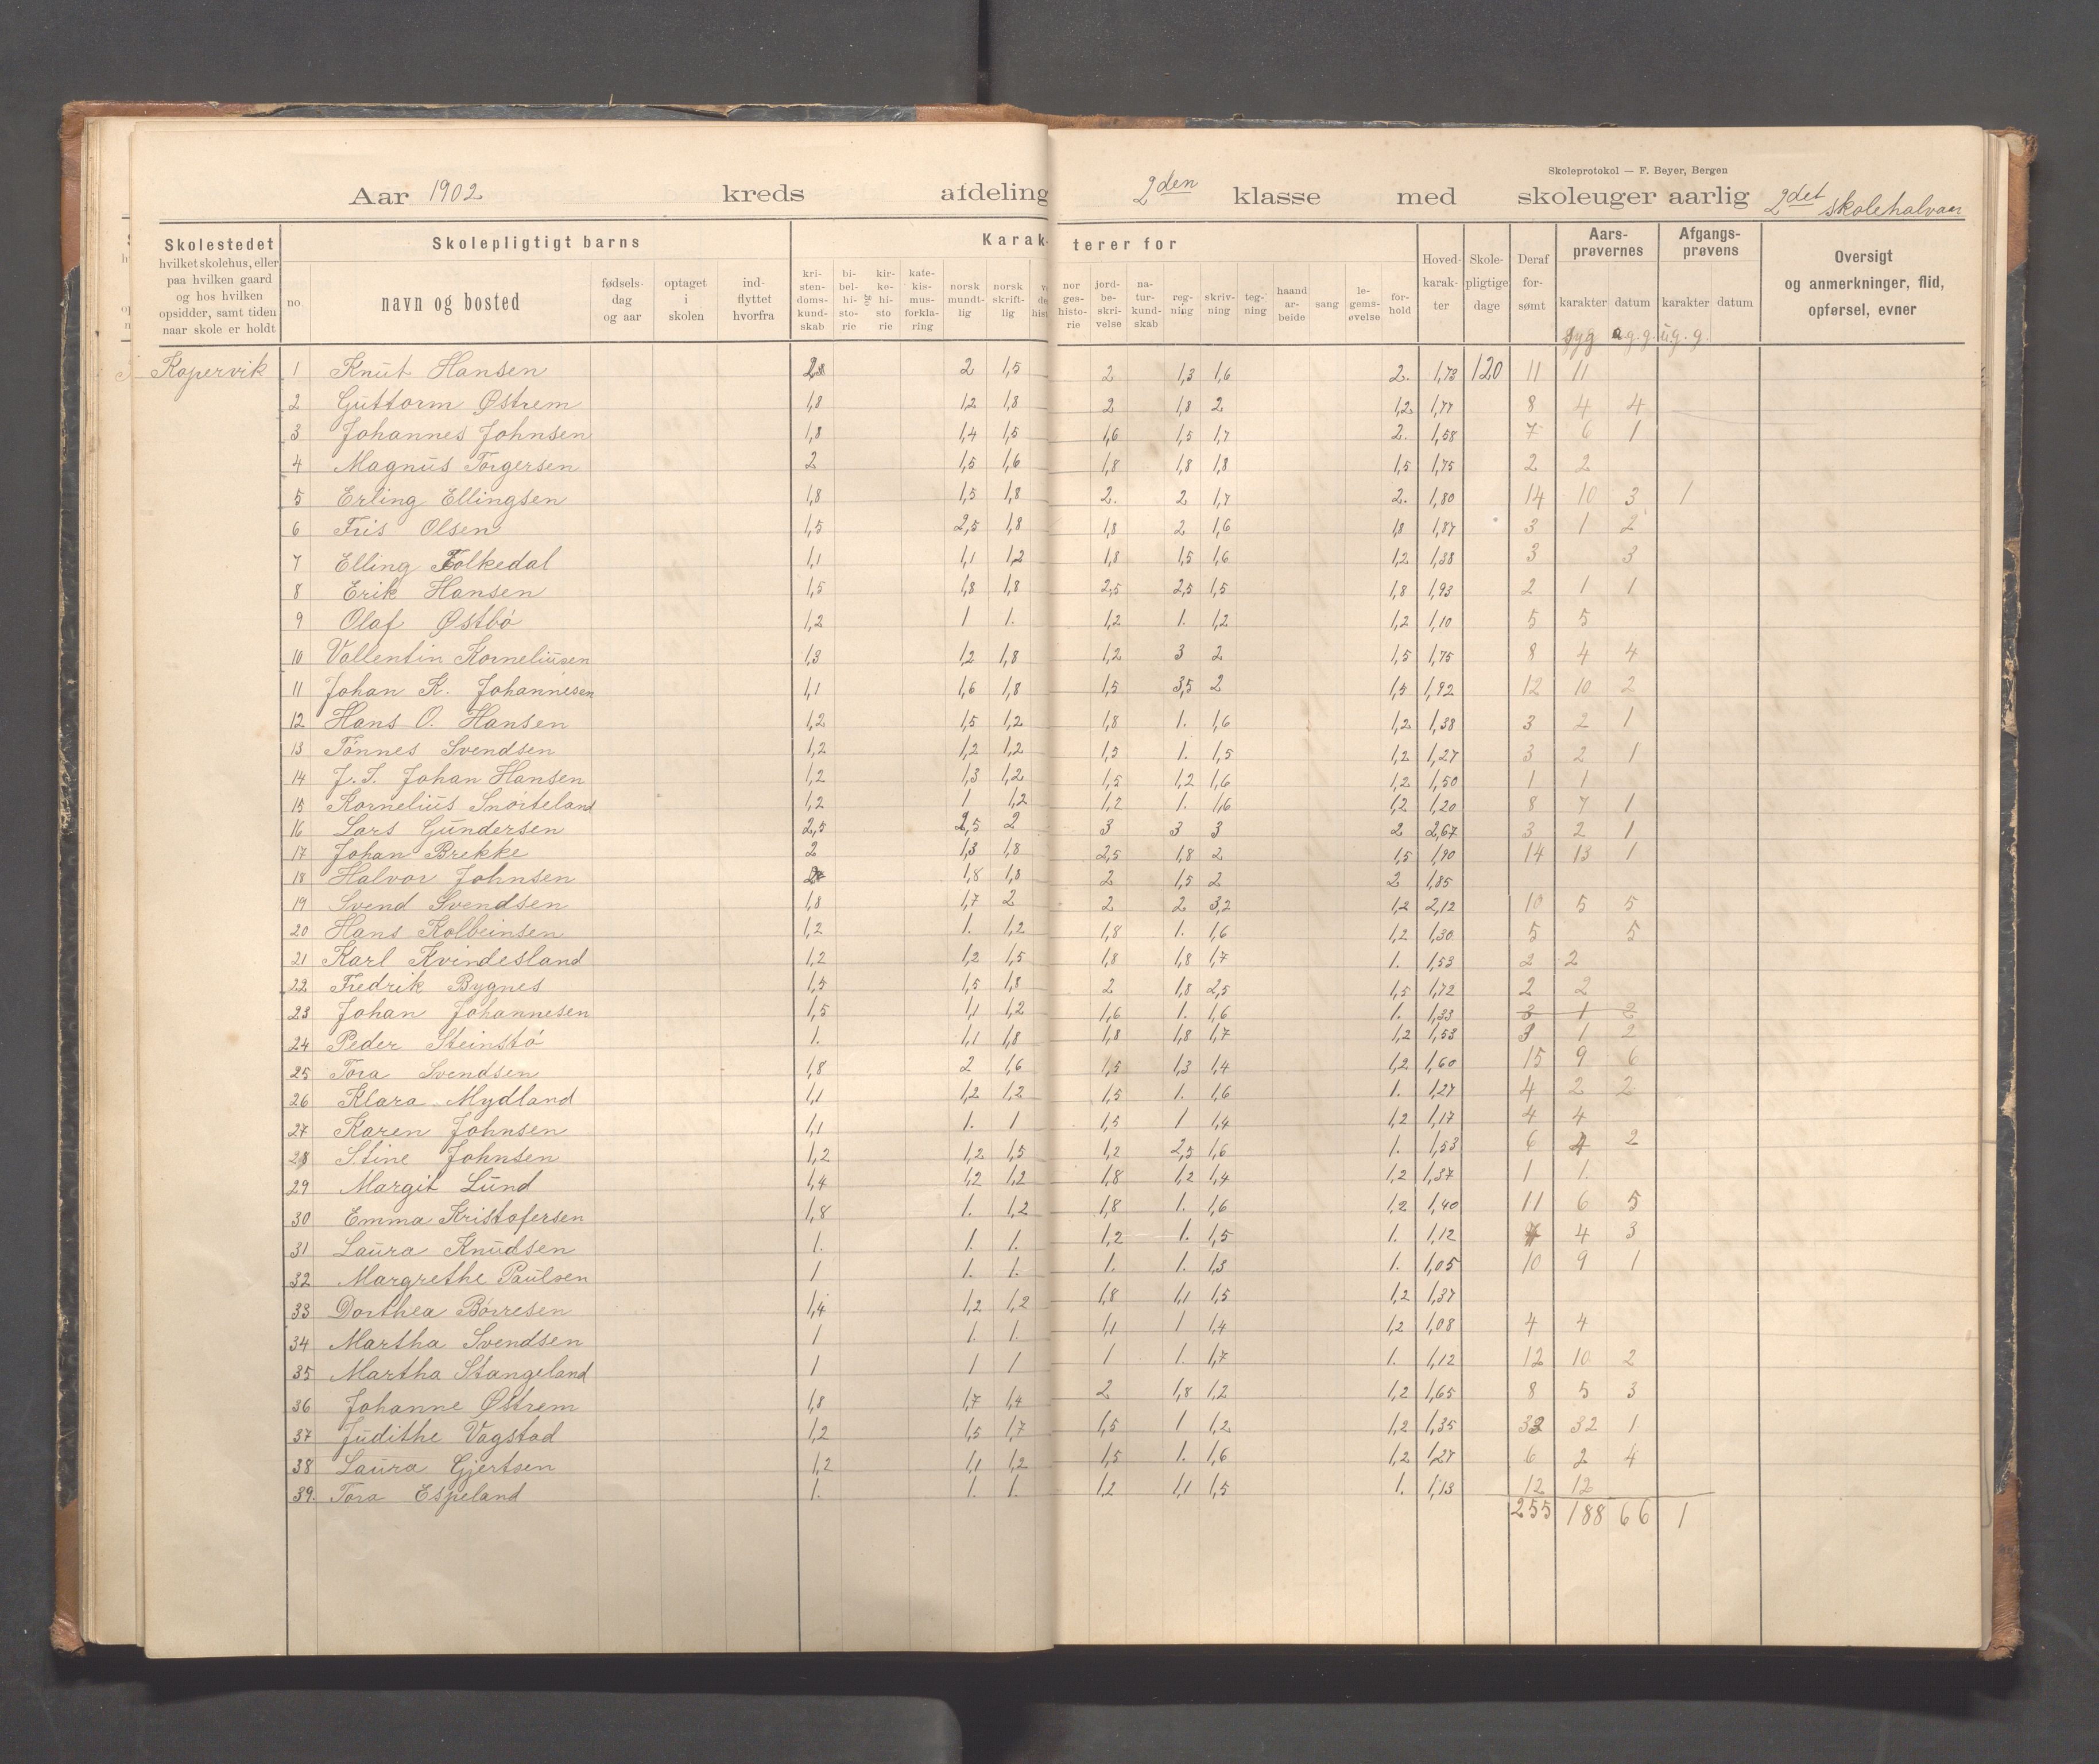 Skoleprotokol — F. Beyer, Bergen
Aar 1902 kreds afdeling 2den klasse med skoleuger aarlig 2det skolehalvaar
Skolestedet hvilket skolehus, eller paa hvilken gaard og hos hvilken opsidder, samt tiden naar skole er holdt
Skolepligtigt barns
no. navn og bosted fødsels-dag og aar optaget i skolen ind-flyttet hvorfra
Karak- terer for
kri-sten-doms-kund-skab bi-bel-hi-sto-rie og kir-ke-hi-sto rie kate-kis-mus-forkla-ring norsk mundt-lig norsk skrift-lig
nor ges-histo-rie jord-be-skri-velse na-tur-kund-skab reg-ning skriv-ning teg-ning haand ar-beide sang le-gems-øvelse for-hold
Hoved-karak-ter Skole-pligtige dage Deraf for-sømt
Aars-prøvernes karakter datum Afgangs-prøvens karakter datum
Oversigt og anmerkninger, flid, opførsel, evner
syg a.g.g. u.g.g.
Kopervik 1 Knut Hansen 2 1,5 2 1,3 1,6 2. 1,73 120 11 11
2 Guttorm Østrem 1,8 1,2 1,8 2 1,8 2 1,2 1,77 8 4 4
3 Johannes Johnsen 1,8 1,4 1,5 1,6 1,5 1,7 2. 1,58 7 6 1
4 Magnus Torgersen 2 1,5 1,6 1,8 1,8 1,8 1,5 1,75 2 2
5 Erling Ellingsen 1,8 1,5 1,8 2. 2 1,7 2. 1,80 14 10 3 1
6 Fris Olsen 1,5 2,5 1,8 1,8 2 1,6 1,8 1,87 3 1 2
7 Elling Folkedal 1,1 1,1 1,2 1,8 1,5 1,6 1,2 1,38 3 3
8 Erik Hansen 1,5 1,8 1,8 2,5 2,5 1,5 1,8 1,93 2 1 1
9 Olaf Østbö 1,2 1 1. 1,2 1. 1,2 1,2 1,10 5 5
10 Vallentin Korneliusen 1,3 1,2 1,8 1,2 3 2 1,5 1,75 8 4 4
11 Johan K. Johannesen 1,1 1,6 1,8 1,5 3,5 2 1,5 1,92 12 10 2
12 Hans O. Hansen 1,2 1,5 1,2 1,8 1. 1,6 1,2 1,38 3 2 1
13 Tönnes Svendsen 1,2 1,2 1,2 1,5 1. 1,5 1,2 1,27 3 2 1
14 J. I. Johan Hansen 1,2 1,3 1,2 1,5 1,2 1,6 1,2 1,50 1 1
15 Kornelius Snörteland 1,2 1 1,2 1,2 1. 1,6 1,2 1,20 8 7 1
16 Lars Gundersen 2,5 2,5 2 3 3 3 2 2,67 3 2 1
17 Johan Brekke 2 1,3 1,8 2,5 1,8 2 1,5 1,90 14 13 1
18 Halvor Johnsen 1,8 1,8 2 1,5 2 2 1,85
19 Svend Svendsen 1,8 1,7 2 2 2 3,2 1,2 2,12 10 5 5
20 Hans Kolbeinsen 1,2 1. 1,2 1,8 1. 1,6 1,2 1,30 5 5
21 Karl Kvindesland 1,2 1,2 1,5 1,8 1,8 1,7 1. 1,53 2 2
22 Fredrik Bygnes 1,5 1,5 1,8 2 1,8 2,5 1,5 1,72 2 2
23 Johan Johannesen 1,5 1,1 1,2 1,6 1. 1,6 1. 1,33 3 1 2
24 Peder Steinstö 1. 1,1 1,8 1,8 1,8 1,7 1,2 1,53 3 1 2
25 Tora Svendsen 1,8 2 1,6 1,5 1,3 1,4 1,2 1,60 15 9 6
26 Klara Mydland 1,1 1,2 1,2 1,5 1. 1,6 1. 1,27 4 2 2
27 Karen Johnsen 1,1 1. 1 1,5 1 1,4 1,2 1,17 4 4
28 Stine Johnsen 1,2 1,2 1,5 1,2 2,5 1,6 1. 1,53 6 4 2
29 Margit Lund 1,4 1,2 1,2 1,8 1,2 1,4 1,2 1,37 1 1.
30 Emma Kristofersen 1,8 1. 1,2 1,8 1. 1,6 1,2 1,40 11 6 5
31 Laura Knudsen 1. 1. 1. 1,2 1. 1,5 1. 1,12 7 4 3
32 Margrethe Paulsen 1 1. 1. 1. 1. 1,3 1. 1,05 10 9 1
33 Dorthea Börresen 1,4 1,2 1,2 1,8 1,1 1,5 1,2 1,37
34 Martha Svendsen 1 1. 1. 1,1 1 1,4 1,2 1,08 4 4
35 Martha Stangeland 1 1 1 1 1. 1,7 1. 1,12 12 10 2
36 Johanne Østrem 1,8 1,7 1,4 2 1,8 1,2 1,2 1,65 8 5 3
37 Judithe Vagstad 1,2 1,5 1,7 1,5 1 1,2 1,2 1,35 33 32 1
38 Laura Gjertsen 1,2 1,1 1,2 1,5 1. 1,6 1,2 1,27 6 2 4
39. Tora Espeland 1. 1. 1. 1,2 1,1 1,5 1. 1,13 12 12
255 188 66 1